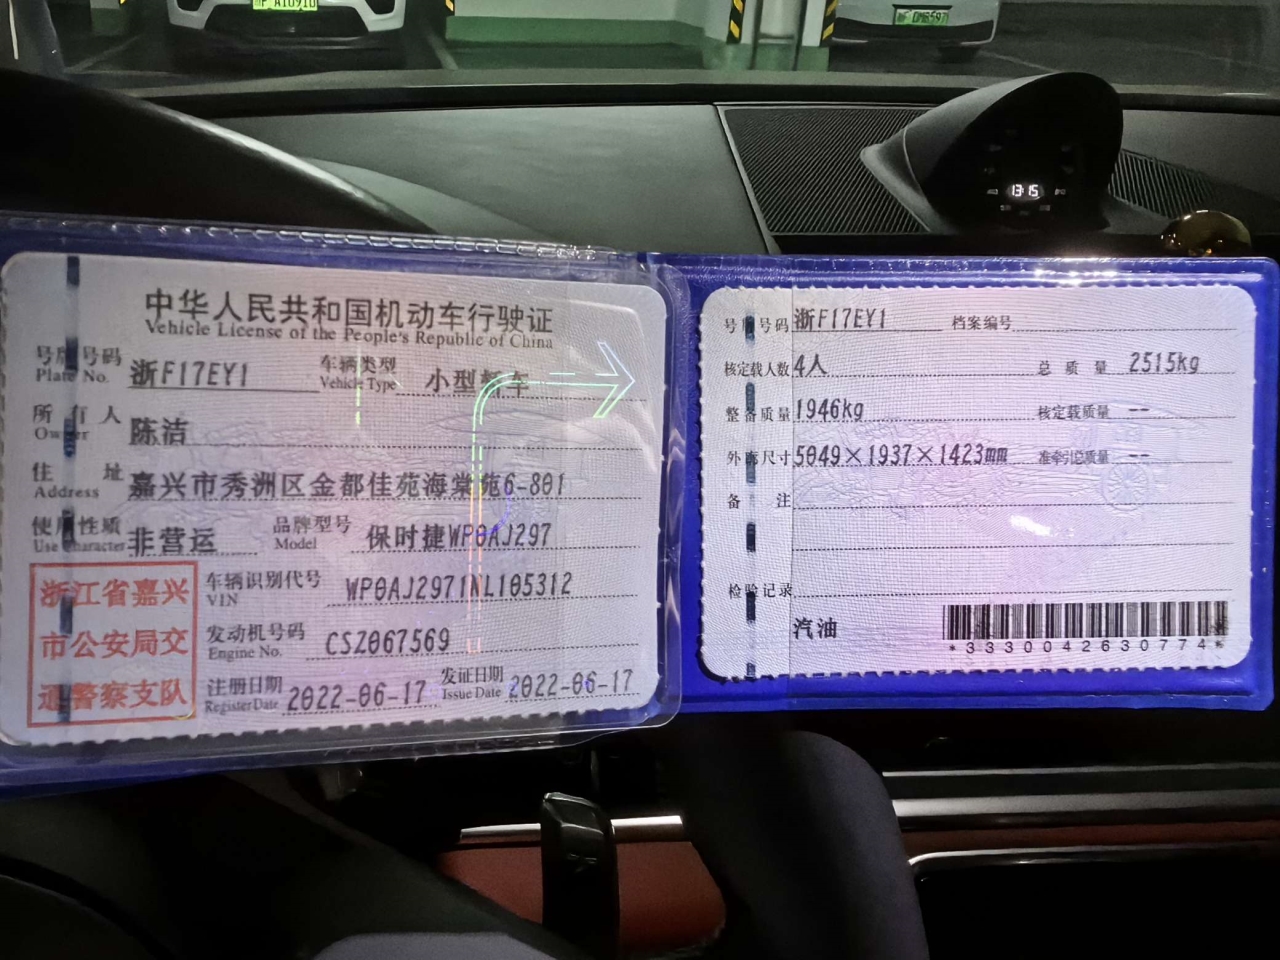 13:15
中华人民共和国机动车行驶证
Vehicle License of the People's Republic of China
号牌号码 浙F17EY1 车辆类型 小型轿车
Plate No. Vehicle Type
所有人 陈洁
Owner
住址 嘉兴市秀洲区金都佳苑海棠苑6-801
Address
使用性质 非营运 品牌型号 保时捷WP0AJ297
Use Character Model
浙江省嘉兴
市公安局交
通警察支队
车辆识别代号 WP0AJ2971NL105312
VIN
发动机号码 CSZ067569
Engine No.
注册日期 2022-06-17 发证日期 2022-06-17
Register Date Issue Date
号牌号码 浙F17EY1 档案编号
核定载人数 4人 总质量 2515kg
整备质量 1946kg 核定载质量 --
外廓尺寸 5049×1937×1423mm 准牵引总质量 --
备注
检验记录
汽油
*3330042630774*